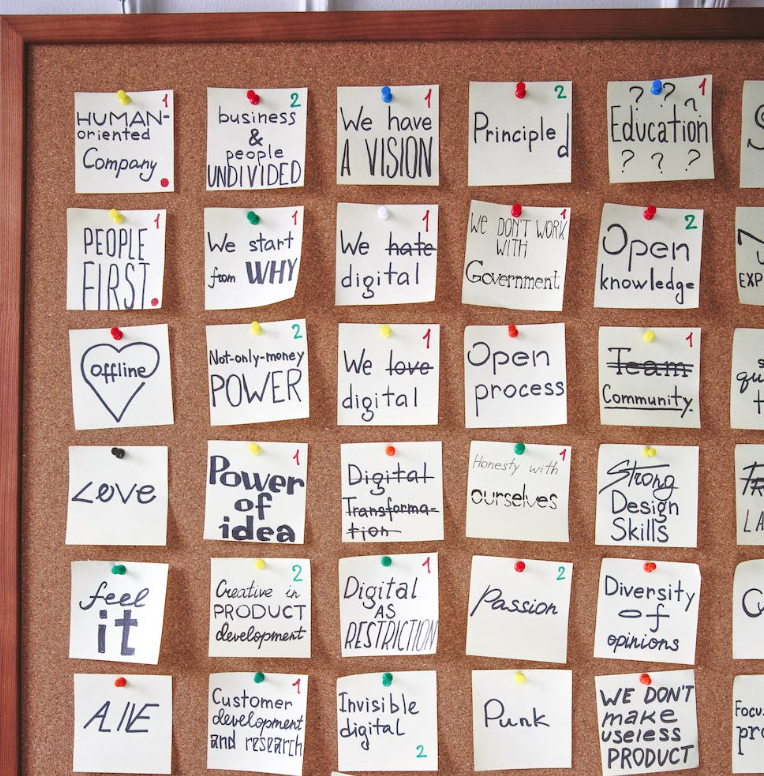 1
HUMAN-
oriented
Company
2
business
&
people
UNDIVIDED
1
We have
A VISION
2
Principled
1
? ? ?
Education
? ? ?
1
PEOPLE
FIRST
1
We start
from WHY
1
We hate
digital
1
WE DON'T WORK
WITH
Government
2
Open
knowledge
EXP
offline
2
Not-only-money
POWER
1
We love
digital
Open
process
1
Team
Community
qu
Love
1
Power
of
idea
Digital
Transforma-
tion
1
Honesty with
ourselves
Strong
Design
Skills
LA
feel
it
2
Creative in
PRODUCT
development
1
Digital
AS
RESTRICTION
2
Passion
Diversity
of
opinions
1
Customer
development
and research
Invisible
digital
2
Punk
WE DON'T
make
useless
PRODUCT
Focus
pro